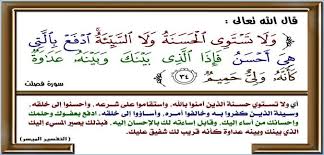 قال الله تعالى :
وَلَا تَسْتَوِي الْحَسَنَةُ وَلَا السَّيِّئَةُ ادْفَعْ بِالَّتِي
هِيَ أَحْسَنُ فَإِذَا الَّذِي بَيْنَكَ وَبَيْنَهُ عَدَاوَةٌ
كَأَنَّهُ وَلِيٌّ حَمِيمٌ ٣٤
سورة فصلت
أي ولا تستوي حسنة الذين آمنوا بالله، واستقاموا على شرعه، وأحسنوا إلى خلقه،
وسيئة الذين كفروا به وخالفوا أمره، وأساؤوا إلى خلقه. ادفع بعفوك وحلمك
وإحسانك من أساء إليك، وقابل إساءته لك بالإحسان إليه، فبذلك يصير المسيء إليك
الذي بينك وبينه عداوة كأنه قريب لك شفيق عليك.
(التفسير الميسر)